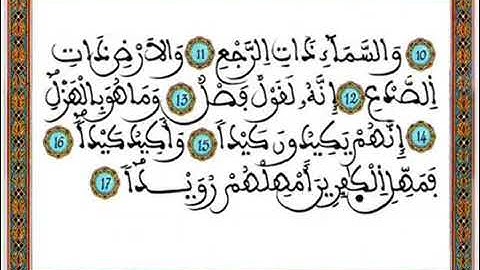 10 وَالسَّمَآءِ ذَاتِ اِلرَّجْعِ 11 وَالَارْضِ ذَاتِ
اِلصَّدْعِ 12 إِنَّهُۥ لَقَوْلٌ فَصْلٌ 13 وَمَا هُوَ بِالْهَزْلِ
14 إِنَّهُمْ يَكِيدُونَ كَيْداً 15 وَأَكِيدُ كَيْداً 16
فَمَهِّلِ اِلْكَٰفِرِينَ أَمْهِلْهُمْ رُوَيْداً 17